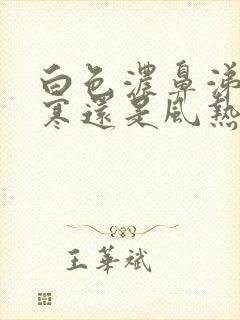 白色濃鼻涕
寒還是風熱
王華斌